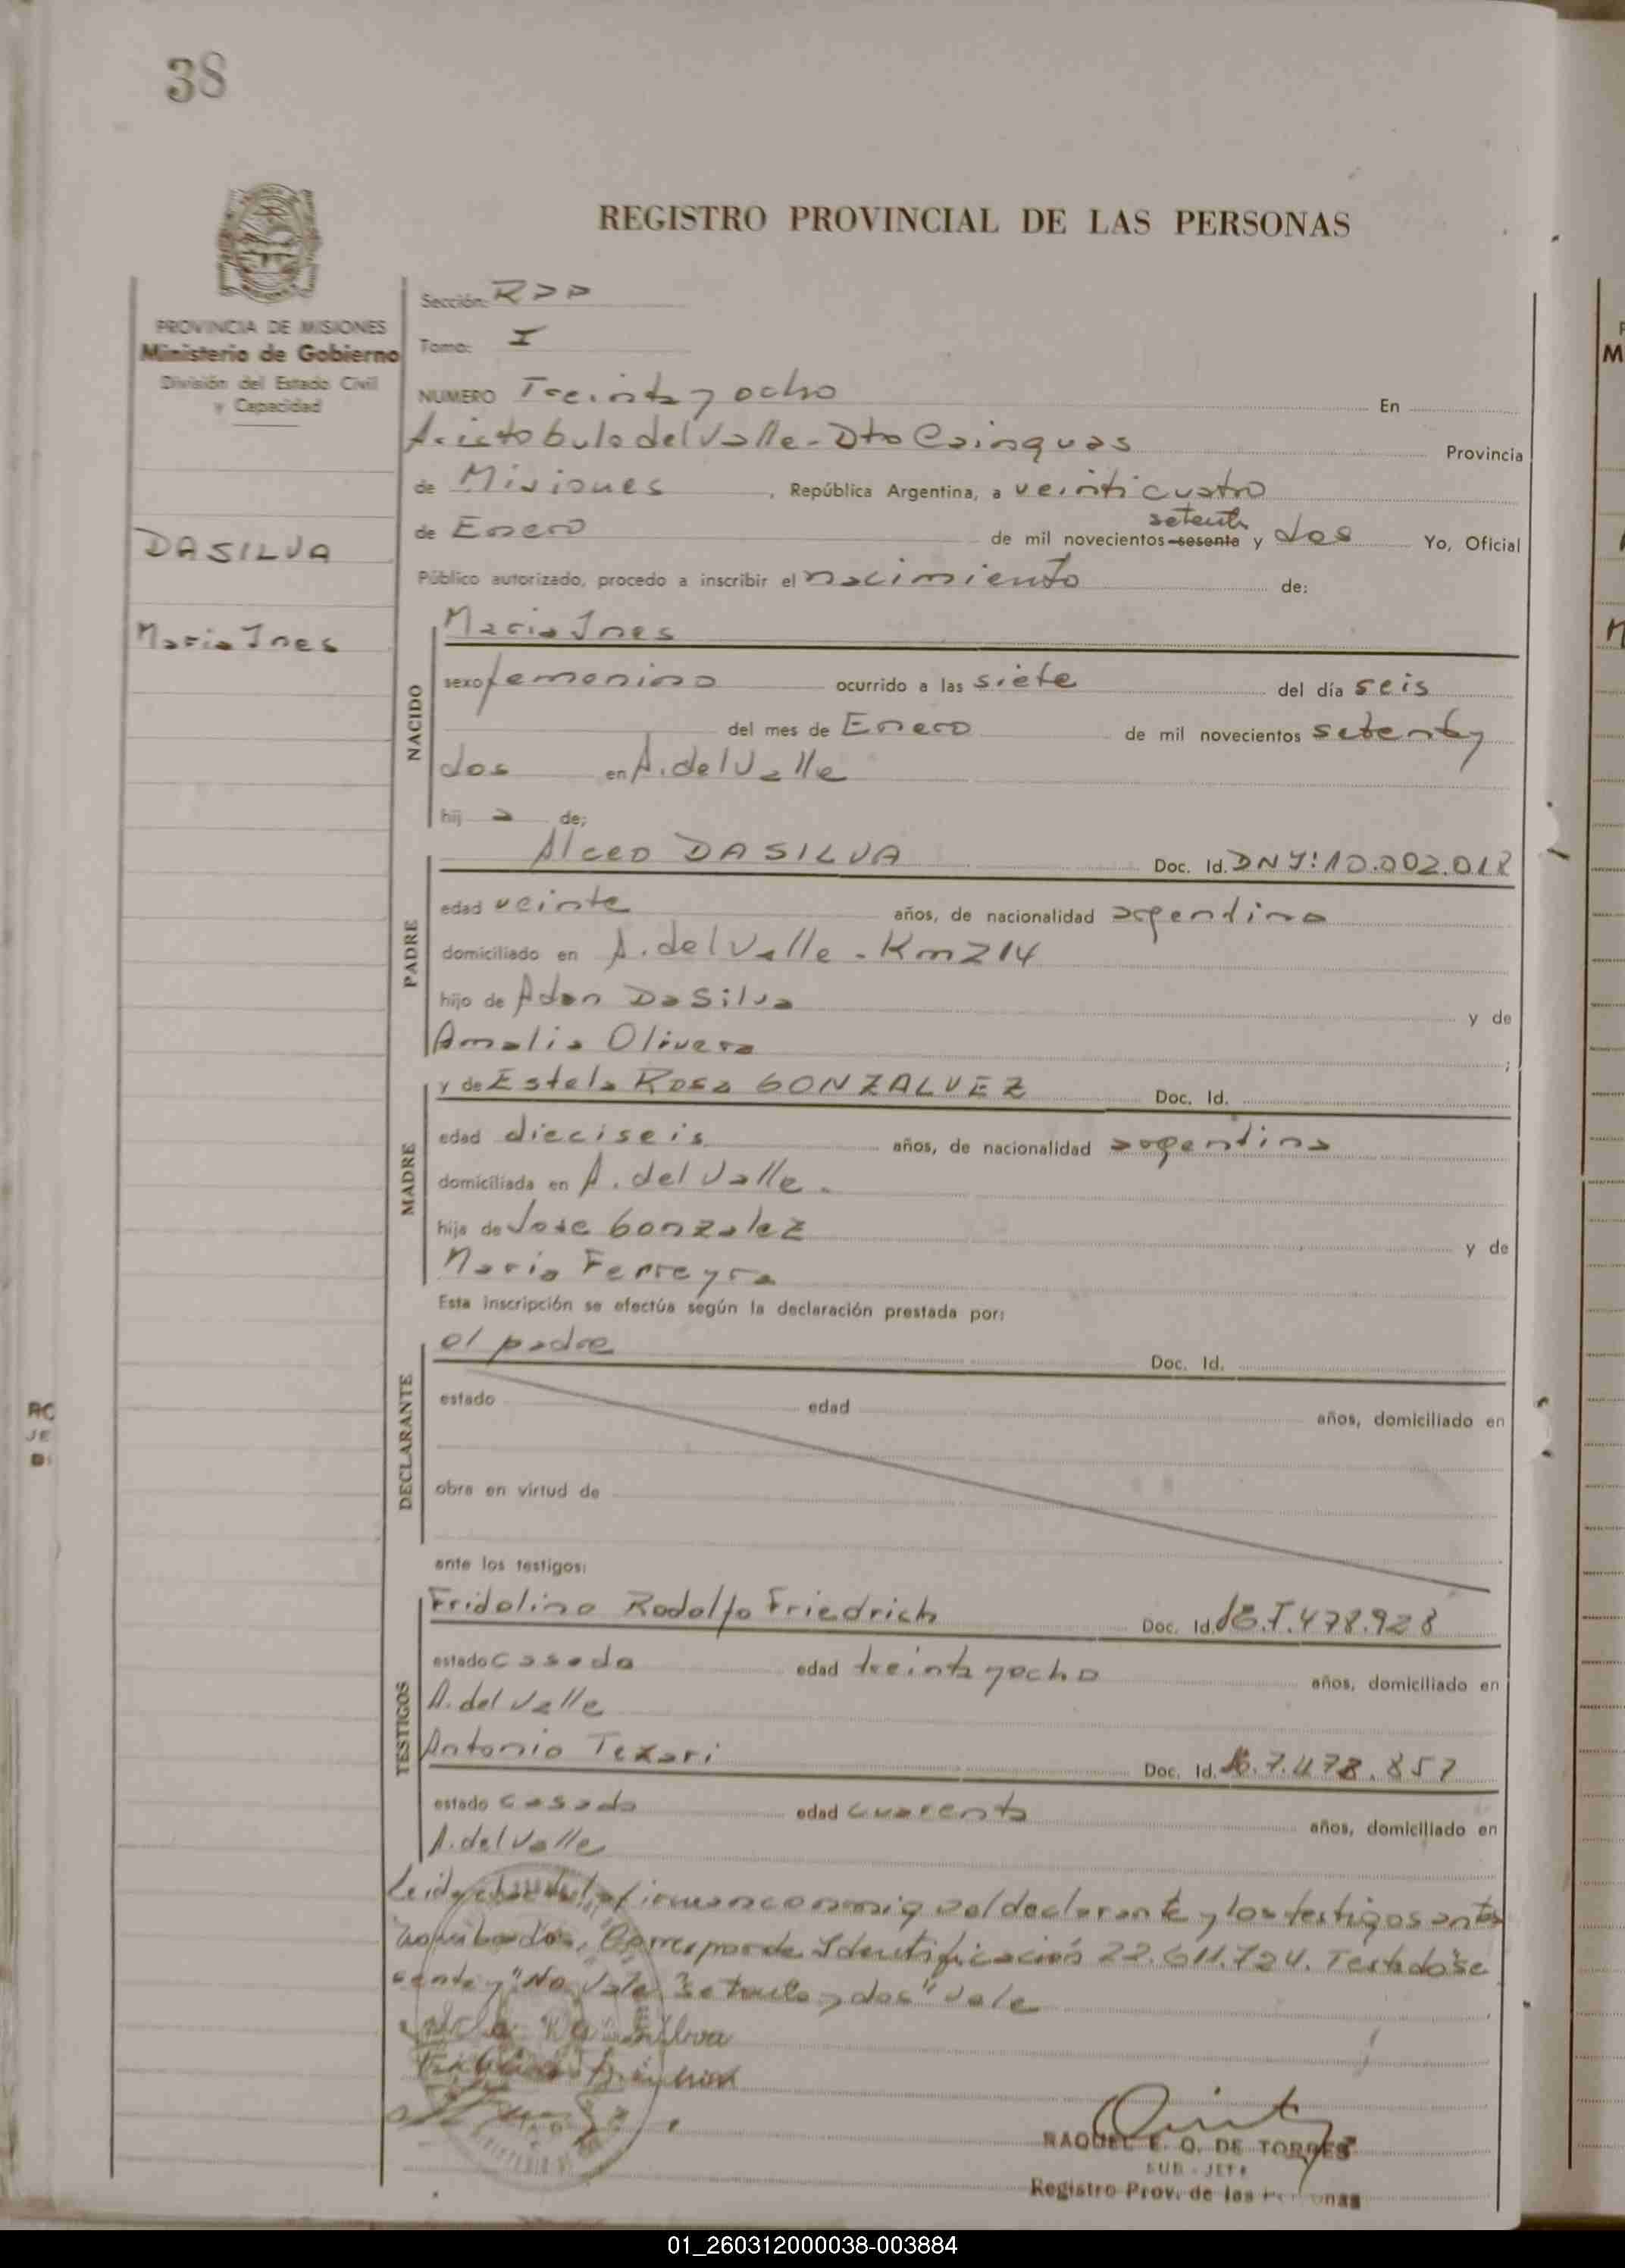 38
REGISTRO PROVINCIAL DE LAS PERSONAS
PROVINCIA DE MISIONES
Ministerio de Gobierno
División del Estado Civil
y Capacidad
DASILVA
Maria Ines
Sección: RPP
Tomo: I
NUMERO Treinta y ocho En
Aristobulo del Valle - Dto Cainguas Provincia
de Misiones, República Argentina, a veinticuatro
setenta
de Enero de mil novecientos sesenta y dos Yo, Oficial
Público autorizado, procedo a inscribir el nacimiento de:
NACIDO
Maria Ines
sexo femenino ocurrido a las siete del día seis
del mes de Enero de mil novecientos setenta y
dos en A. del Valle
hij a de;
PADRE
Alceo DASILVA Doc. Id. DNI: 10.002.018
edad veinte años, de nacionalidad argentina
domiciliado en A. del Valle - Km 214
hijo de Adan DaSilva y de
Amalia Olivera ;
MADRE
y de Estela Rosa GONZALVEZ Doc. Id.
edad dieciseis años, de nacionalidad argentina
domiciliada en A. del Valle.
hija de Jose Gonzalez y de
Maria Ferreyra
Esta inscripción se efectúa según la declaración prestada por:
DECLARANTE
el padre Doc. Id.
estado edad años, domiciliado en
obra en virtud de
ante los testigos:
TESTIGOS
Fridolino Rodolfo Friedrich Doc. Id. 478.928
estado casado edad treinta y ocho años, domiciliado en
A. del Valle
Antonio Texari Doc. Id. 7.478.857
estado casado edad cuarenta años, domiciliado en
A. del Valle
Leida el acta la firman conmigo el declarante y los testigos antes
nombrados. Corresponde Identificación 22.611.724. Testado "se
senta y" No Vale "setenta y dos" vale
Da Silva
RAQUEL E. Q. DE TORRES
SUB-JEFE
Registro Prov. de las Personas
01_260312000038-003884